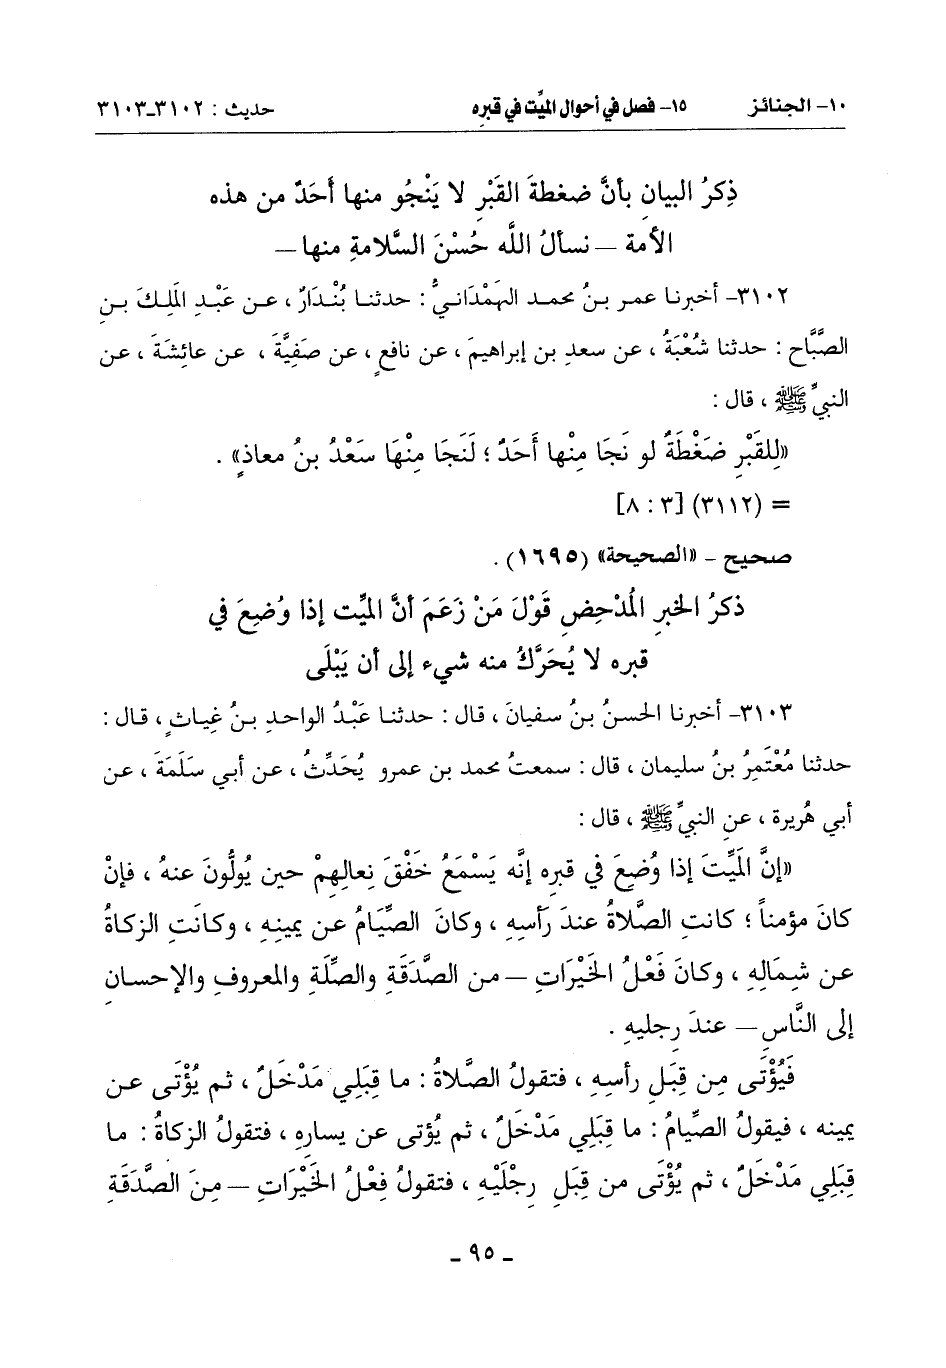 ١٠- الجنائز ١٥- فصل في أحوال الميِّت في قبره حديث : ٣١٠٢-٣١٠٣
ذِكرُ البيان بأنَّ ضغطةَ القَبْرِ لا يَنْجُو منها أَحَدٌ من هذه
الأمة — نسألُ اللَّه حُسْنَ السَّلامةِ منها —
٣١٠٢- أخبرنا عمر بنُ محمد الهَمْدَانيُّ : حدثنا بُنْدَارٌ ، عن عَبْدِ المَلِكَ بنِ
الصَّبَّاح : حدثنا شُعْبَةُ ، عن سعدِ بن إبراهيمَ ، عن نافعٍ ، عن صَفِيَّةَ ، عن عائِشَةَ ، عن
النبيِّ ﷺ ، قال :
«لِلقَبْرِ ضَغْطَةٌ لو نَجَا مِنْها أَحَدٌ ؛ لَنَجَا مِنْهَا سَعْدُ بنُ معاذٍ» .
= (٣١١٢) [٣ : ٨]
صحيح - «الصحيحة» (١٦٩٥) .
ذكرُ الخبرِ المُدْحِضِ قَوْلَ مَنْ زَعَمَ أنَّ الميِّت إذا وُضِعَ في
قبره لا يُحَرَّكُ منه شيء إلى أن يَبْلَى
٣١٠٣- أخبرنا الحسنُ بنُ سفيانَ ، قال : حدثنا عَبْدُ الواحدِ بنُ غِياثٍ ، قال :
حدثنا مُعْتَمِرُ بنُ سليمان ، قال : سمعتُ محمد بن عمرو يُحَدِّثُ ، عن أبي سَلَمَةَ ، عن
أبي هُريرة ، عنِ النبيِّ ﷺ ، قال :
«إنَّ المَيِّتَ إذا وُضِعَ في قبرِه إنَّه يَسْمَعُ خَفْقَ نِعالِهِمْ حين يُولُّونَ عنهُ ، فإنْ
كانَ مؤمناً ؛ كانتِ الصَّلاةُ عندَ رَأسِهِ ، وكانَ الصِّيَامُ عن يمينِهِ ، وكانَتِ الزكاةُ
عن شِمَالِهِ ، وكانَ فَعْلُ الخَيْرَاتِ — من الصَّدَقَةِ والصِّلَةِ والمعروفِ والإحسانِ
إلى النَّاسِ — عندَ رِجليهِ .
فَيُؤْتَى مِن قِبَلِ رأسِهِ ، فتقولُ الصَّلاةُ : ما قِبَلِي مَدْخَلٌ ، ثم يُؤْتَى عن
يمينه ، فيقولُ الصِّيامُ : ما قِبَلِي مَدْخَلٌ ، ثم يُؤتى عن يسارِهِ ، فتقولُ الزكاةُ : ما
قِبَلِي مَدْخَلٌ ، ثم يُؤْتَى من قِبَلِ رِجْلَيْهِ ، فتقولُ فِعْلُ الخَيْرَاتِ — مِنَ الصَّدَقَةِ
- ٩٥ -